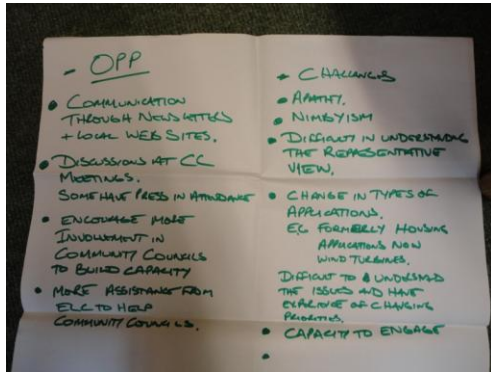 - OPP
• COMMUNICATION
THROUGH NEWSLETTERS
+ LOCAL WEB SITES.
• DISCUSSIONS AT CC
MEETINGS.
SOME HAVE PRESS IN ATTENDANCE
• ENCOURAGE MORE
INVOLVEMENT IN
COMMUNITY COUNCILS
TO BUILD CAPACITY
• MORE ASSISTANCE FROM
ELC TO HELP
COMMUNITY COUNCILS.
- CHALLENGES
• APATHY.
• NIMBYISM
• DIFFICULTY IN UNDERSTANDING
THE REPRESENTATIVE
VIEW.
• CHANGE IN TYPES OF
APPLICATIONS.
EG FORMERLY HOUSING
APPLICATIONS NOW
WIND TURBINES.
DIFFICULT TO UNDERSTAND
THE ISSUES AND HAVE
EXPERIENCE OF CHANGING
PRIORITIES.
• CAPACITY TO ENGAGE
•